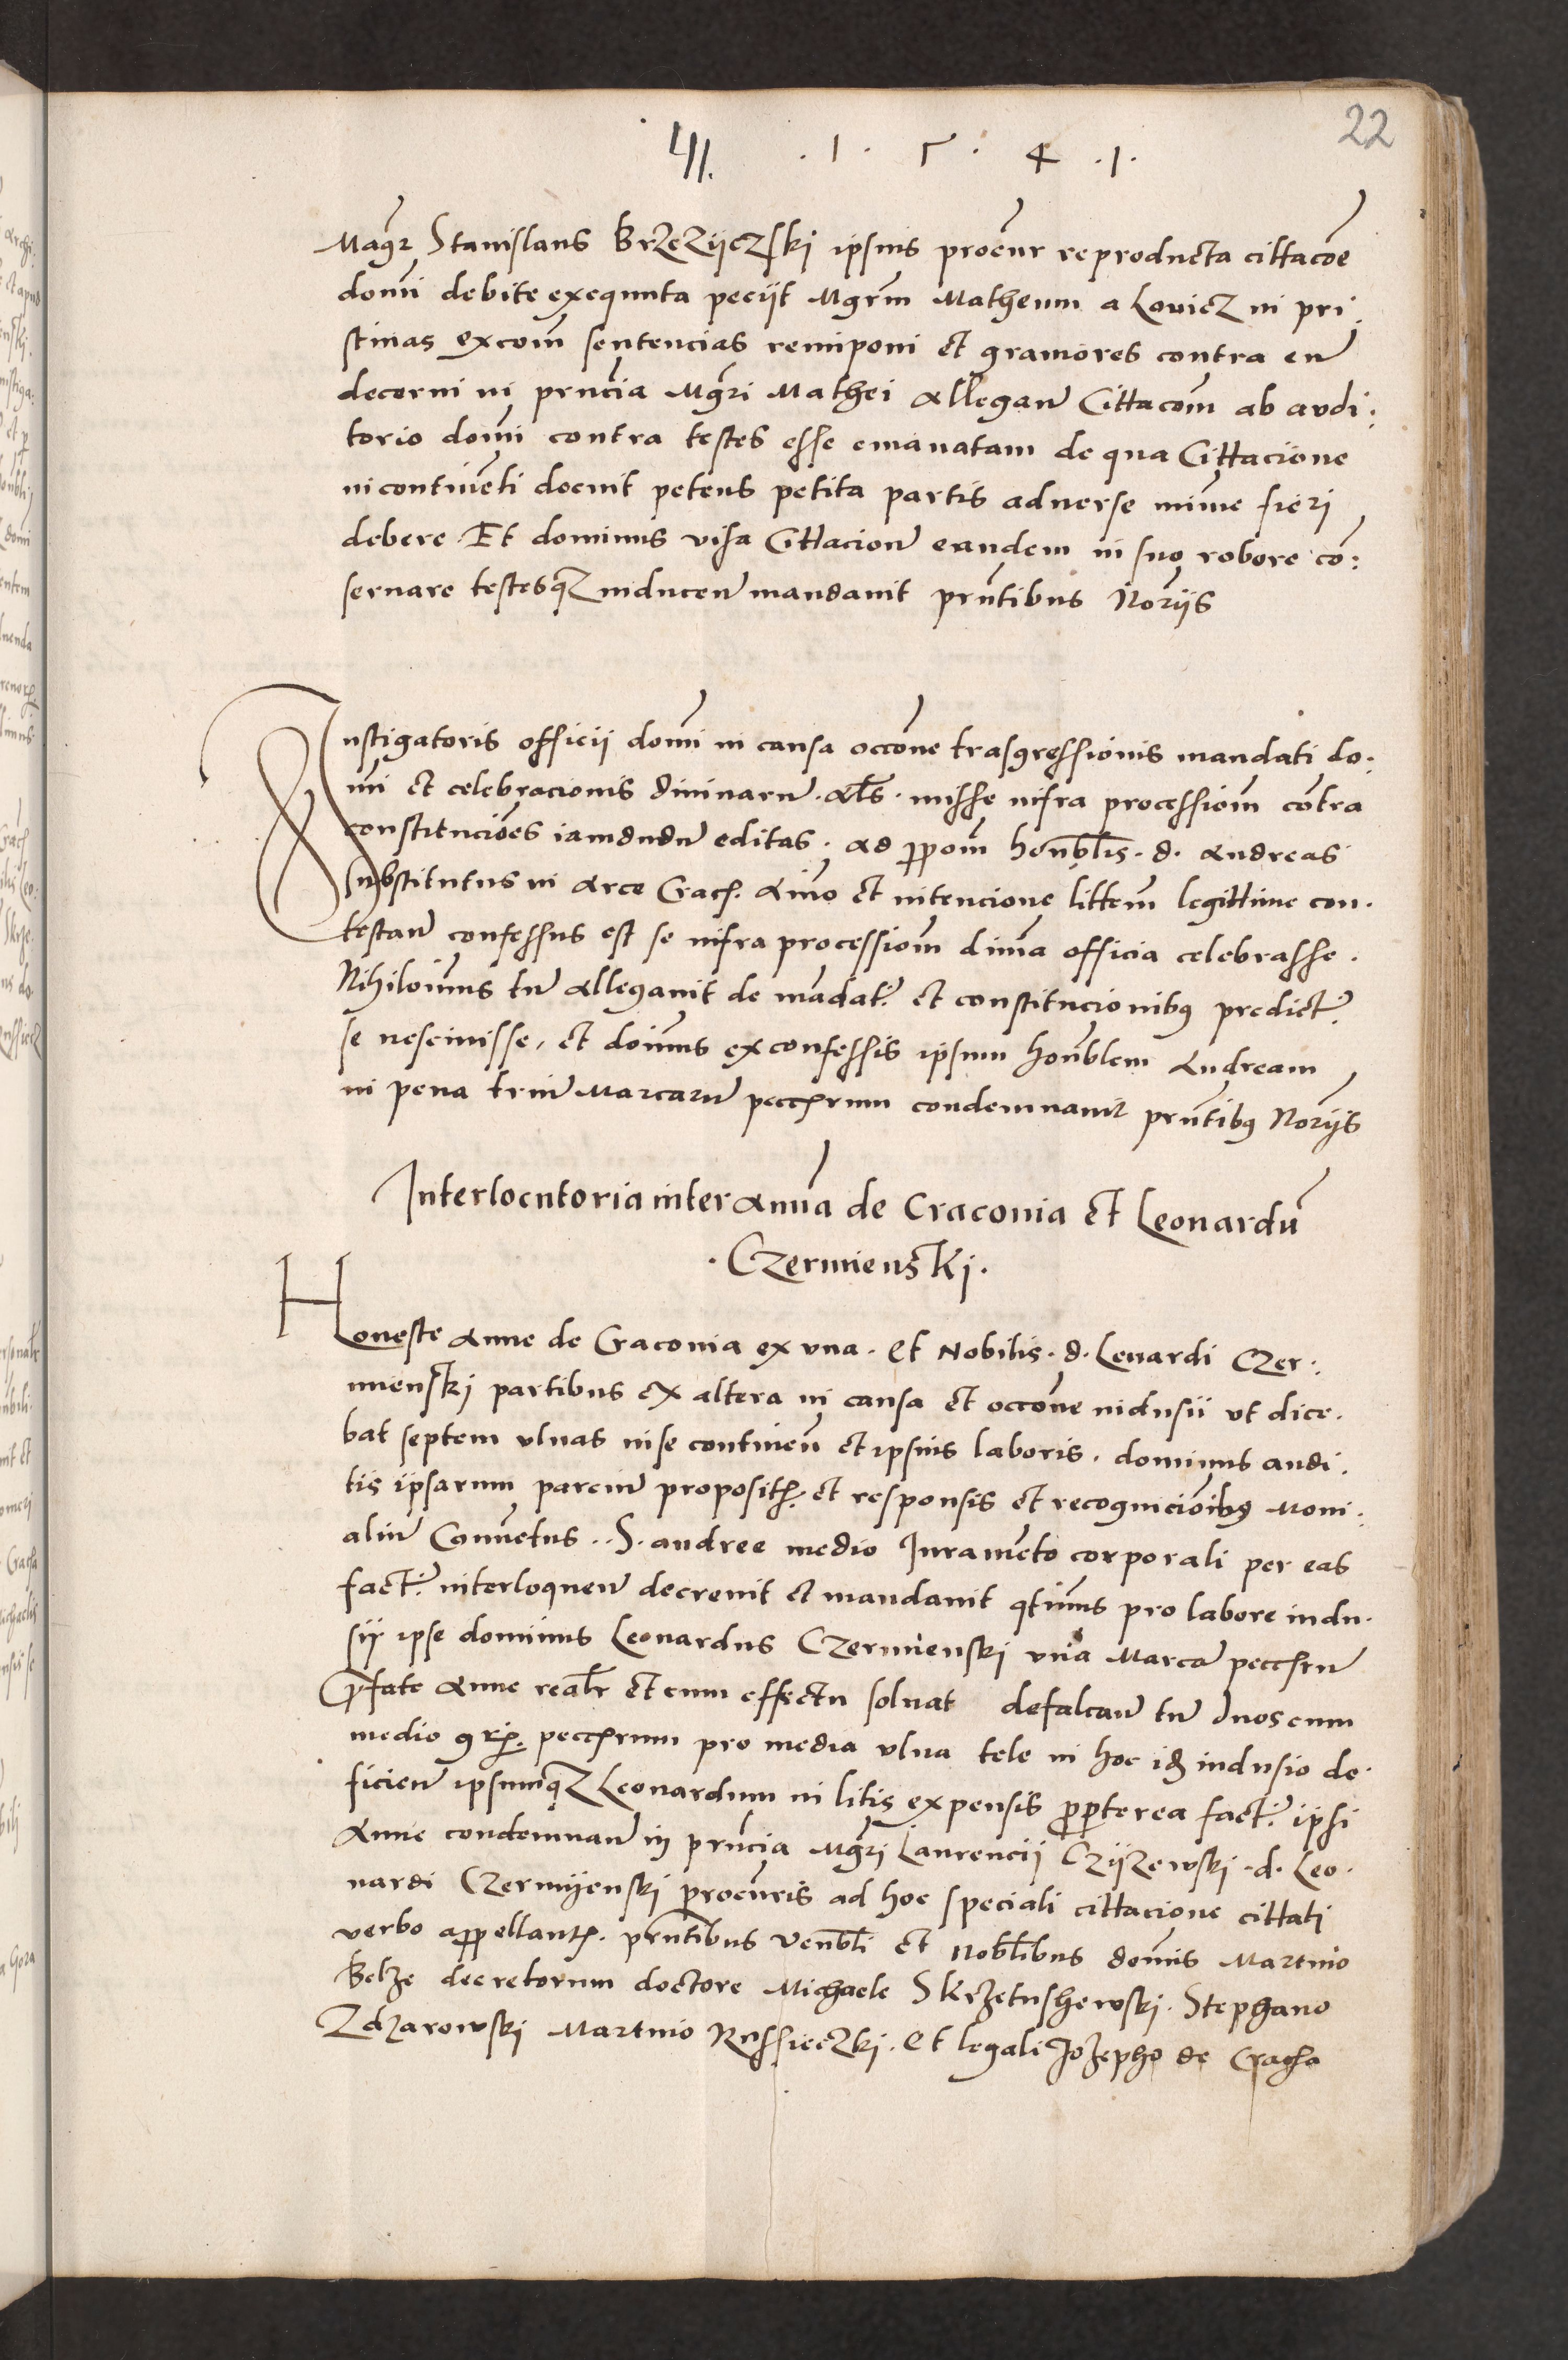 22
· 1 · 5 · 4 · 1 ·
Magr̃ Stanislaus Brzezijczski ipsius procur̃ reproducta cittacoē
domī debite exequuta peciit Mgrm̃ Matheum a Lovicz in pri:
stinas excom̃ sentencias reimponi et graviores contra eū
decerni in prn̄cia Mgr̃i Mathei allegaṅ Cittacom̃ ab audi:
torio domī contra testes esse emanatam de qua Cittacijone
in continēti docuit petens petita partis adverse minīe fieri
debere Et dominus visa Cittacionē eandem in suo robore cō:
servare testesqz inducen̄ mandavit prn̄tibus Nor̃ijs
Instigatoris officii domī in causa occōne trāsgressionis mandati do:
mī et celebracionis divinarū · al̃s · misse infra processiom̃ contra
constitucioēs iamdudū editas · ad ppom̃ honb̃lis · d · Andreas
substitutus in Arce Crac̃ · Aīmo et intencione littem̃ legittime con·
testan̄ confessus est se infra processiom̃ diviā officia celebrasse ·
Nihiloīmus tn̄ allegavit de mādat̃ et constitucionibus predict̃
se nescivisse, et doīmus ex confessis ipsum honb̃lem Andream
in pena triū Marcarū pecc͂rum condemnavit prn̄tibus Nor̃ijs
Interlocutoria inter Annā de Cracovia et Leonardū
· Czermienski ·
Honeste Anne de Cracovia ex una · et Nobilis · d · Lenardi Czer:
mienski partibus ex altera in causa et occōne indusii ut dice·
bat septem ulnas in se continen̄ et ipsius laboris · dominus audi·
tis ipsarum parciū proposit̃ et responsis et recognicioībus Moni·
aliū Convētus · S · andree medio Juramēto corporali per eas
fact̃ interloquen̄ decrevit et mandavit qtīmus pro labore indu·
sij ipse dominus Leonardus Czermienski unā Marcā pecc͂rū
p̃fate Anne realr̃ et cum effectu solvat defalcan̄ tn̄ duos cum
medio gr̃ · pecc͂rum pro media ulna tele in hoc id̃ indusio de·
ficien̄ ipsumqz Leonardum in litis expensis propterea fact̃ ipsi
Anne condemnan̄ in prn̄cia Mgr̃i Laurencii Czijzewski · d · Leo·
nardi Czermijenski procur̃is ad hoc speciali cittacione cittati
verbo appellant̃ · prn̄tibus Venb̃li et Nobl̃ibus domīs Martino
Belze decretorum doctore Michaele Skrzetushewski · Stephano
Zdzarowski Martino Russieczki · et legali Jozepho de Crac̃a